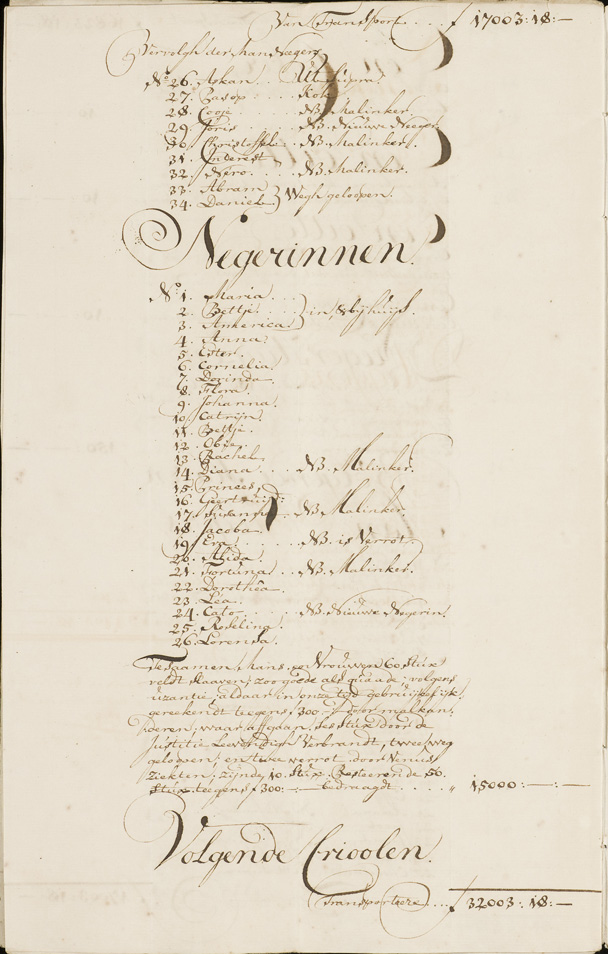 Van Transport .... ƒ 17003:18:—
Vervolgh der man Neegers
No. 26. Askan .. Ut Supra
27. Basop .... Kok
28. Coojo .... NB. Malinker.
29. Joris .... NB. Nieuwe Neeger
30. Christoffel .. NB. Malinker.
31. Inderest
32. Nero .... NB. Malinker.
33. Abram
34. Daniel } Wegh geloopen.
Negerinnen.
No. 1. Maria ...
2. Bettje ...
3. Amkerica } in, & bij huijs.
4. Anna.
5. Ester.
6. Cornelia.
7. Dorinda.
8. Flora.
9. Johanna.
10. Catrijn.
11. Bettje.
12. Obje.
13. Rachel.
14. Diana ... NB. Malinker.
15. Princes.
16. Geertruijd.
17. Susanna .. NB. Malinker.
18. Jacoba.
19. Eva .... NB. is Verrot.
20. Abida.
21. Fortuna ... NB. Malinker.
22. Dorothéa.
23. Léa.
24. Cato .... NB. Nieuwe Negerin.
25. Roseling.
26. Lorensa.
Te Saamen, mans, en Vrouwen 60 stux
veldt slaaven; zoo goede als quaade; volgens
uzantie, aldaar in onze tijd gebruijkelijk,
gereekendt teegens ƒ 300:— door malkan,
deren, waar aff gaan, ses stux door de
Justitie Leevendigh Verbrandt, twee weg
geloopen; en twee verrot door Venus
ziekten; zijnde, 10. stux. Resteerende 50.
stux. teegens ƒ 300:— bedraagdt .... „ 15000:—:—
Volgende Crioolen.
Transporteere ... ƒ 32003:18:—